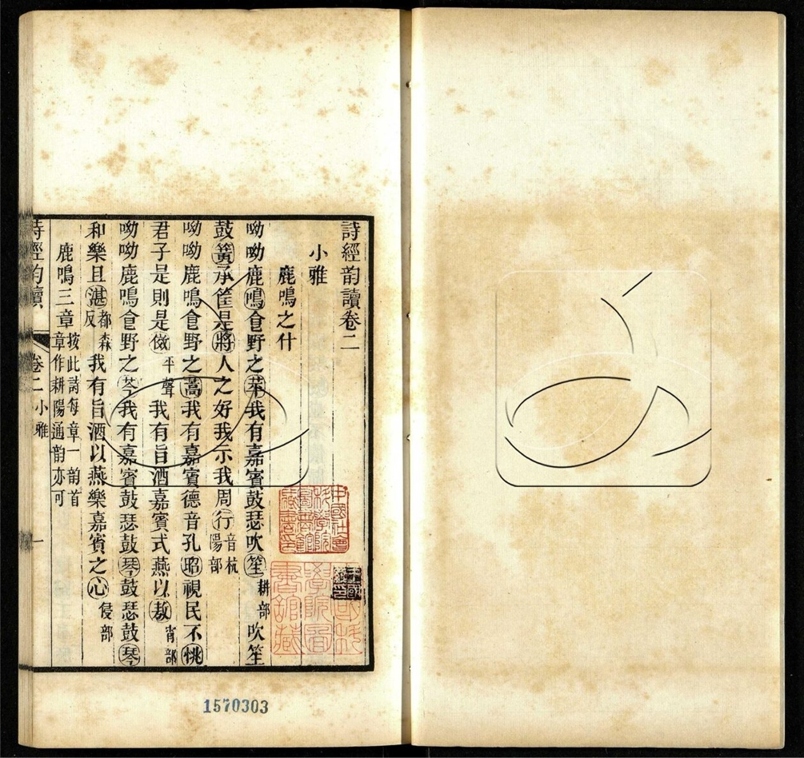 詩經韵讀卷二
小雅
鹿鳴之什
呦呦鹿鳴食野之苹我有嘉賓鼓瑟吹笙耕部吹笙
鼓簧承筐是將人之好我示我周行音杭陽部
呦呦鹿鳴食野之蒿我有嘉賓德音孔昭視民不恌
君子是則是傚平聲我有旨酒嘉賓式燕以敖宵部
呦呦鹿鳴食野之芩我有嘉賓鼓瑟鼓琴鼓瑟鼓琴
和樂且湛都森反我有旨酒以燕樂嘉賓之心侵部
鹿鳴三章按此詩每章一韵首章作耕陽通韵亦可
詩經韵讀 卷二小雅 一
1570303